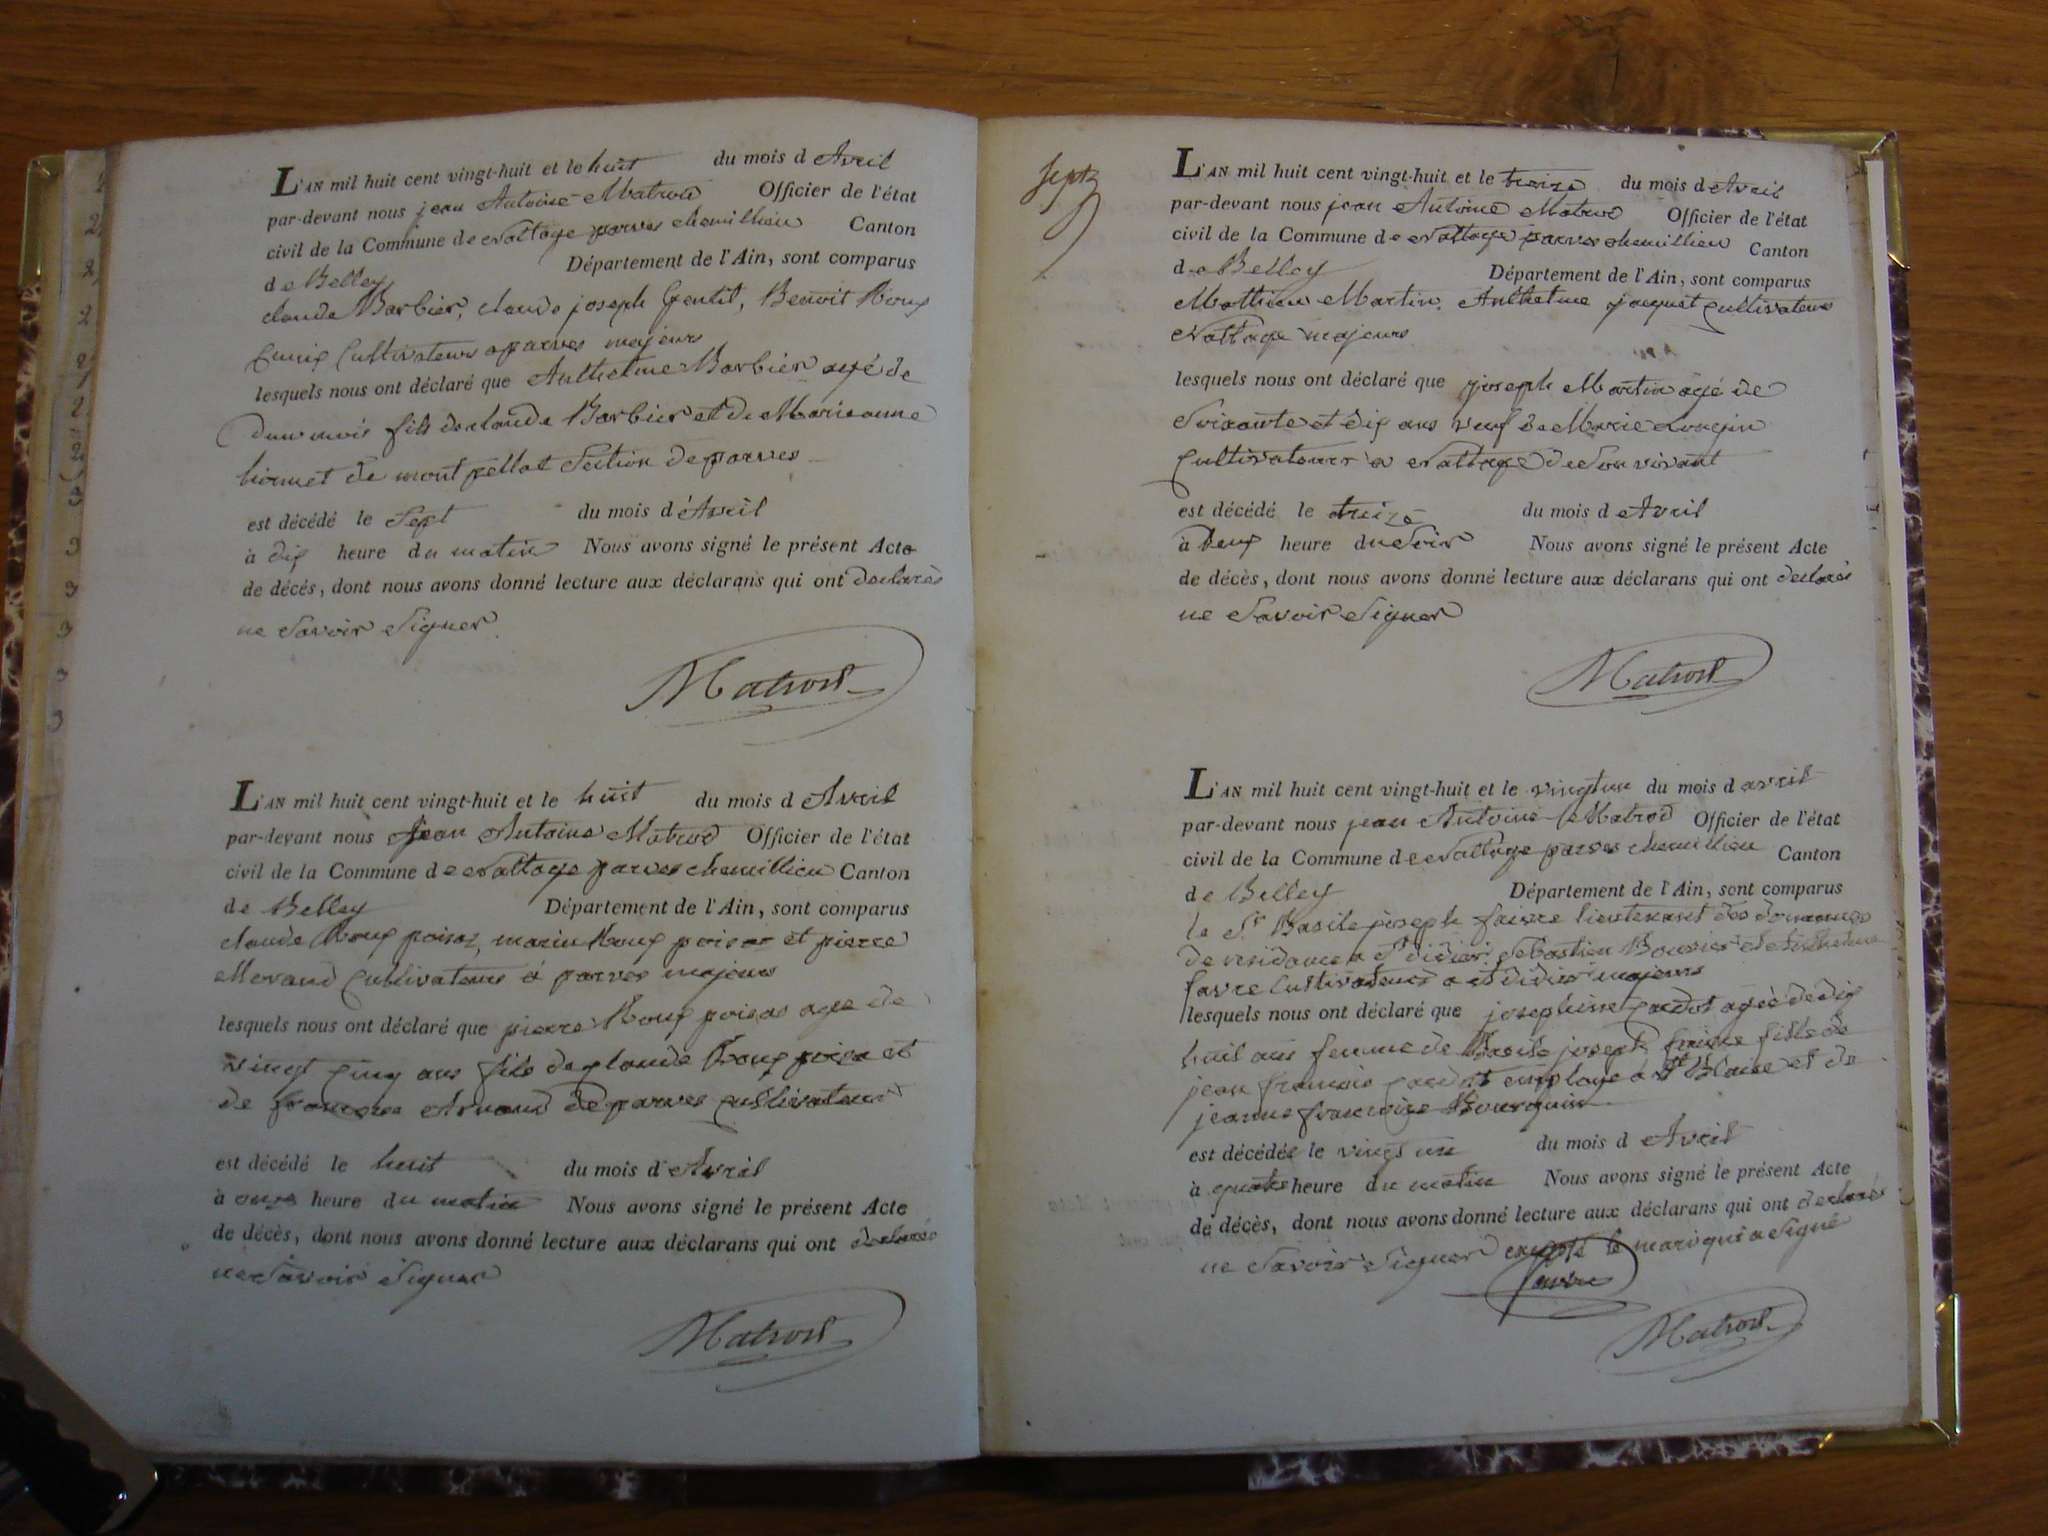 L'AN mil huit cent vingt-huit et le huit du mois d Avril
par-devant nous jean Antoine Matrod Officier de l'état
civil de la Commune de nattage parves chemillieu Canton
de Belley Département de l'Ain, sont comparus
claude Barbier, claude joseph Gentil, Benoit Roux
cultivateurs a parves majeurs
lesquels nous ont déclaré que Anthelme Barbier agé de
d'un mois fils de claude Barbier et de Marieanne
de montpellat Section de parves
est décédé le Sept du mois d'Avril
à dix heure du matin Nous avons signé le présent Acte
de décés, dont nous avons donné lecture aux déclarans qui ont declarés
ne Savoir Signer
Matrod
L'AN mil huit cent vingt-huit et le huit du mois d Avril
par-devant nous Jean Antoine Matrod Officier de l'état
civil de la Commune de nattage parves chemillieu Canton
de Belley Département de l'Ain, sont comparus
claude Roux poisaz, marin Roux poisaz et pierre
Morand cultivateurs à parves majeurs
lesquels nous ont déclaré que pierre Roux poisaz agé de
vingt cinq ans fils de claude Roux poisaz et
de francoise Arnaud de parves cultivateur
est décédé le huit du mois d'Avril
à onze heure du matin Nous avons signé le présent Acte
de décès, dont nous avons donné lecture aux déclarans qui ont declarés
ne Savoir Signer
Matrod
sept
L'AN mil huit cent vingt-huit et le treize du mois d Avril
par-devant nous jean Antoine Matrod Officier de l'état
civil de la Commune de nattage parves chemillieu Canton
de Belley Département de l'Ain, sont comparus
Mathieu Martin, Anthelme jaquet cultivateurs
nattage majeurs
lesquels nous ont déclaré que joseph Martin agé de
Soixante et dix ans veuf de Marie
cultivateur a nattage de Son vivant
est décédé le treize du mois d Avril
à Deux heure du Soir Nous avons signé le présent Acte
de décés, dont nous avons donné lecture aux déclarans qui ont declarés
ne Savoir Signer
Matrod
L'AN mil huit cent vingt-huit et le vingtun du mois d avril
par-devant nous jean Antoine Matrod Officier de l'état
civil de la Commune de nattage parves chemillieu Canton
de Belley Département de l'Ain, sont comparus
le Sr Basile joseph faivre lieutenant des douannes
de residance a St didier, Sebastien Bouvier et Anthelme
favre cultivateurs a st didier majeurs
lesquels nous ont déclaré que josephine agée de dix
huit ans femme de Basile joseph faivre fille de
jean francois employé à St Blaise et de
jeanne francoise Bourquin
est décédée le vingt un du mois d Avril
à quatre heure du matin Nous avons signé le présent Acte
de décès, dont nous avons donné lecture aux déclarans qui ont declarés
ne Savoir Signer excepté le mari qui a Signé
faivre
Matrod